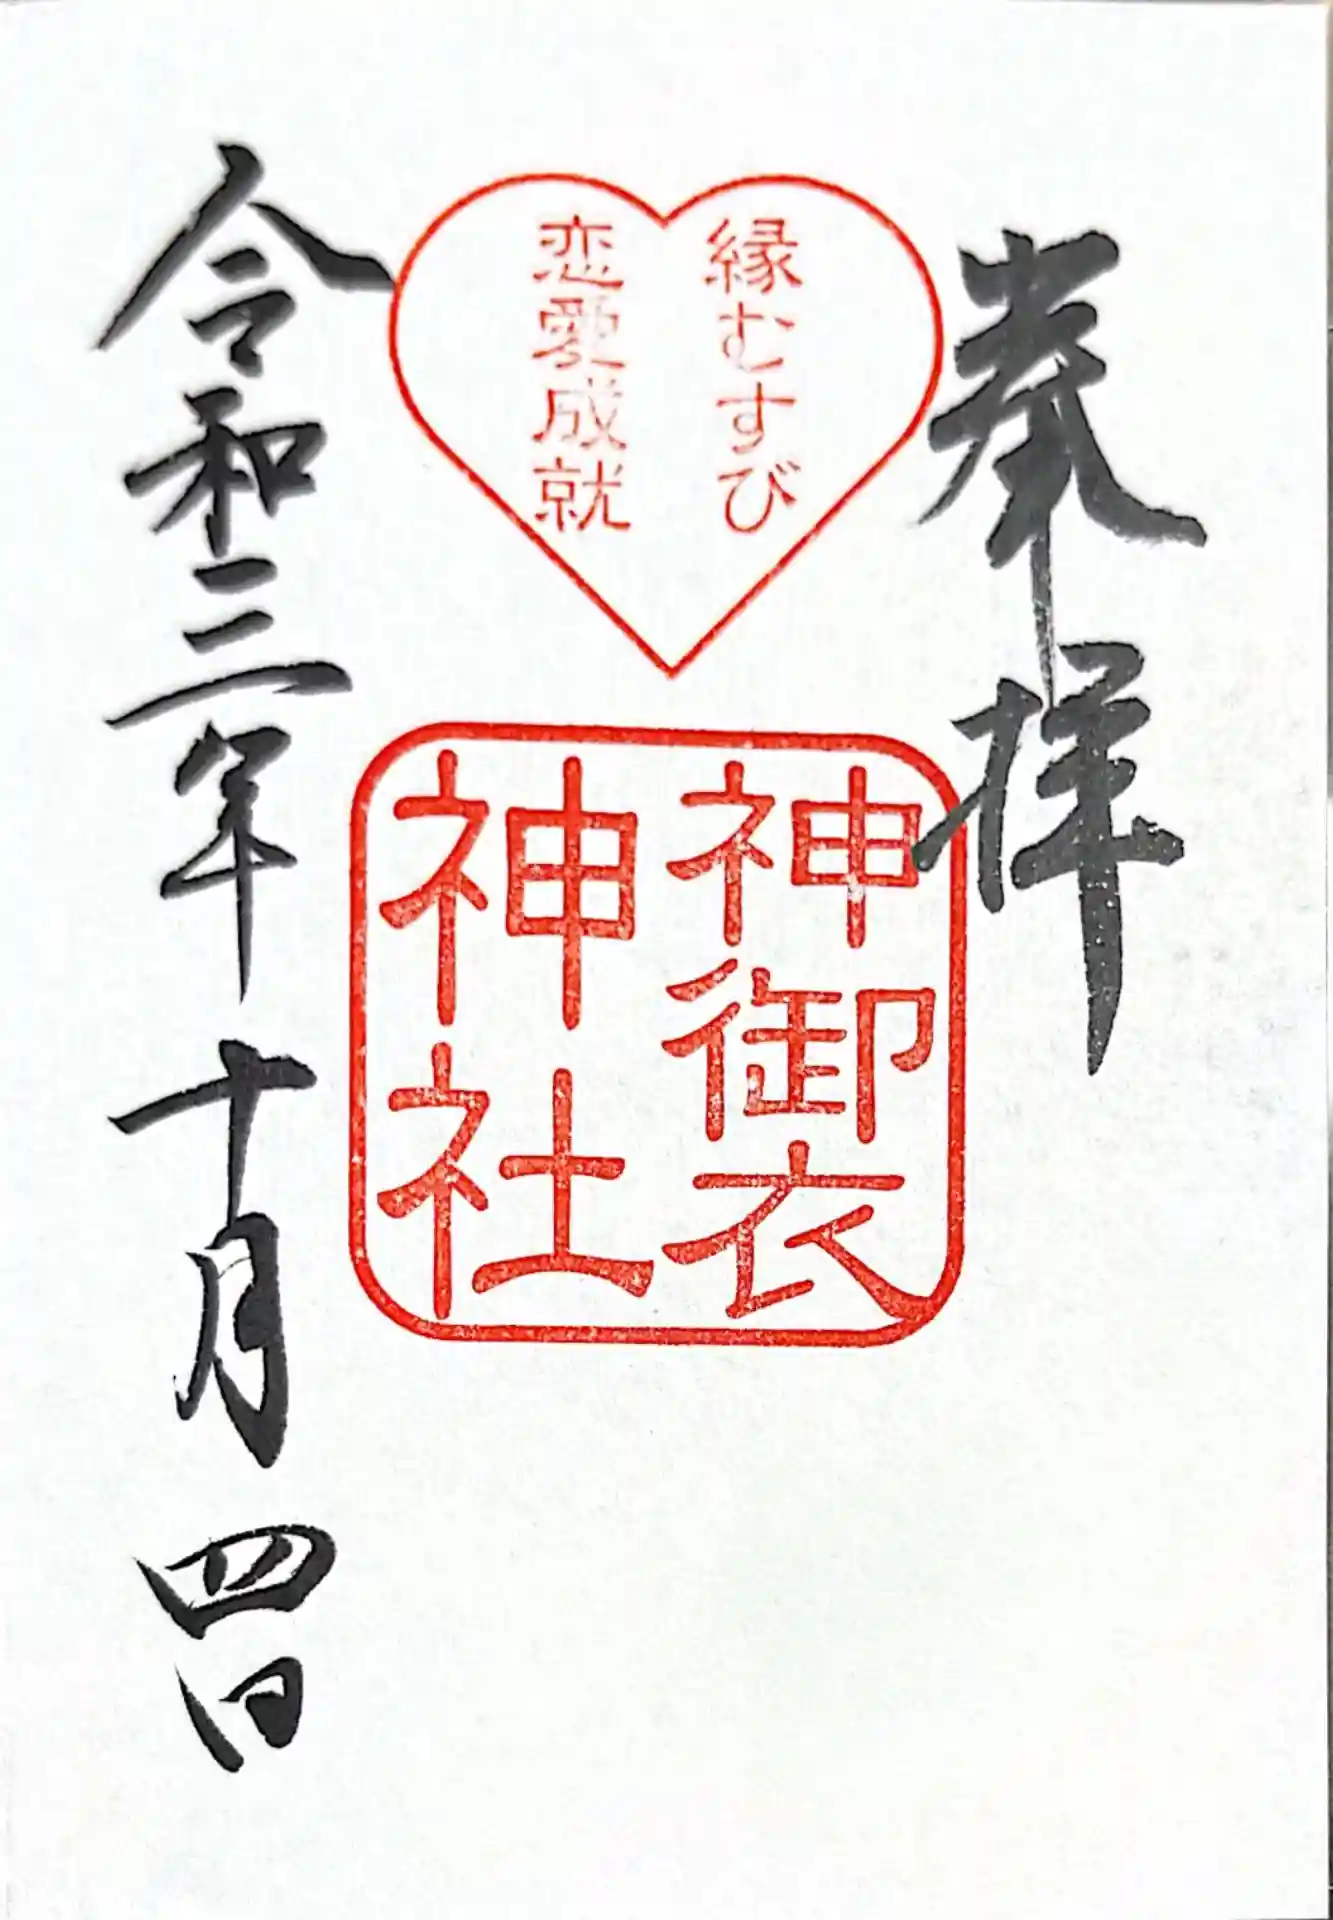 奉拝
縁むすび
恋愛成就
神御衣
神社
令和三年十月四日